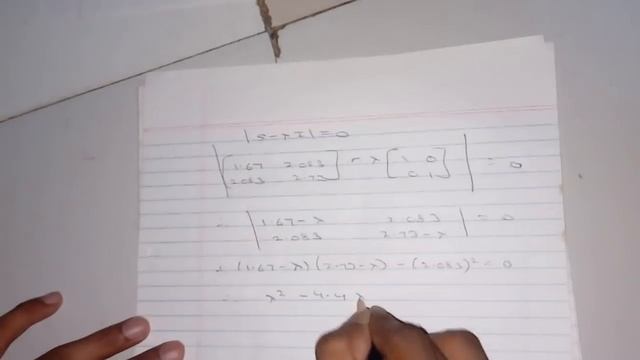 |S-λI|=0
|[1.67 2.083 - λ [1 0 | = 0
2.083 2.73] 0 1]
∴ |1.67-λ 2.083| = 0
2.083 2.73-λ
∴ (1.67-λ)(2.73-λ) - (2.083)² = 0
∴ λ² - 4.4λ